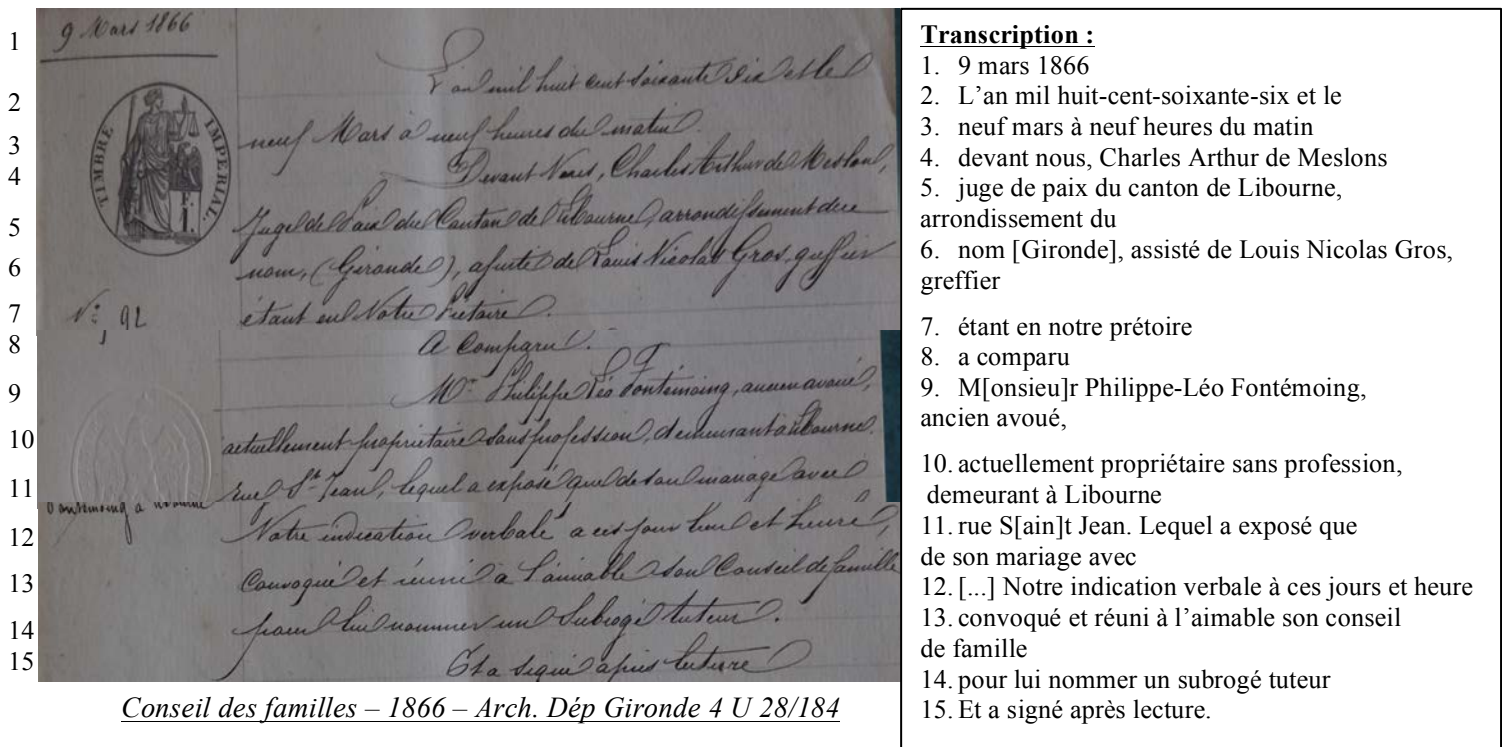 1 9 Mars 1866
2 L'an mil huit cent soixante six et le
TIMBRE IMPERIAL.
3 neuf Mars à neuf heures du matin.
4 Devant Nous, Charles Arthur de Meslon,
5 Juge de Paix du Canton de Libourne, arrondissement de ce
6 nom, (Gironde), assisté de Louis Nicolas Gros, greffier
7 N° 92 étant en Notre Prétoire.
8 A Comparu.
9 Mr Philippe Léo Fontémoing, ancien avoué,
10 actuellement propriétaire sans profession, demeurant à Libourne.
11 rue St Jean, lequel a exposé que de son mariage avec
12 Notre indication verbale a ces jour lieu et heure,
13 Convoqué et réuni à l'aimable son Conseil de famille
14 pour lui nommer un Subrogé tuteur.
15 Et a signé après lecture
Conseil des familles – 1866 – Arch. Dép Gironde 4 U 28/184
Transcription :
1. 9 mars 1866
2. L'an mil huit-cent-soixante-six et le
3. neuf mars à neuf heures du matin
4. devant nous, Charles Arthur de Meslons
5. juge de paix du canton de Libourne,
arrondissement du
6. nom [Gironde], assisté de Louis Nicolas Gros,
greffier
7. étant en notre prétoire
8. a comparu
9. M[onsieu]r Philippe-Léo Fontémoing,
ancien avoué,
10. actuellement propriétaire sans profession,
demeurant à Libourne
11. rue S[ain]t Jean. Lequel a exposé que
de son mariage avec
12. [...] Notre indication verbale à ces jours et heure
13. convoqué et réuni à l'aimable son conseil
de famille
14. pour lui nommer un subrogé tuteur
15. Et a signé après lecture.